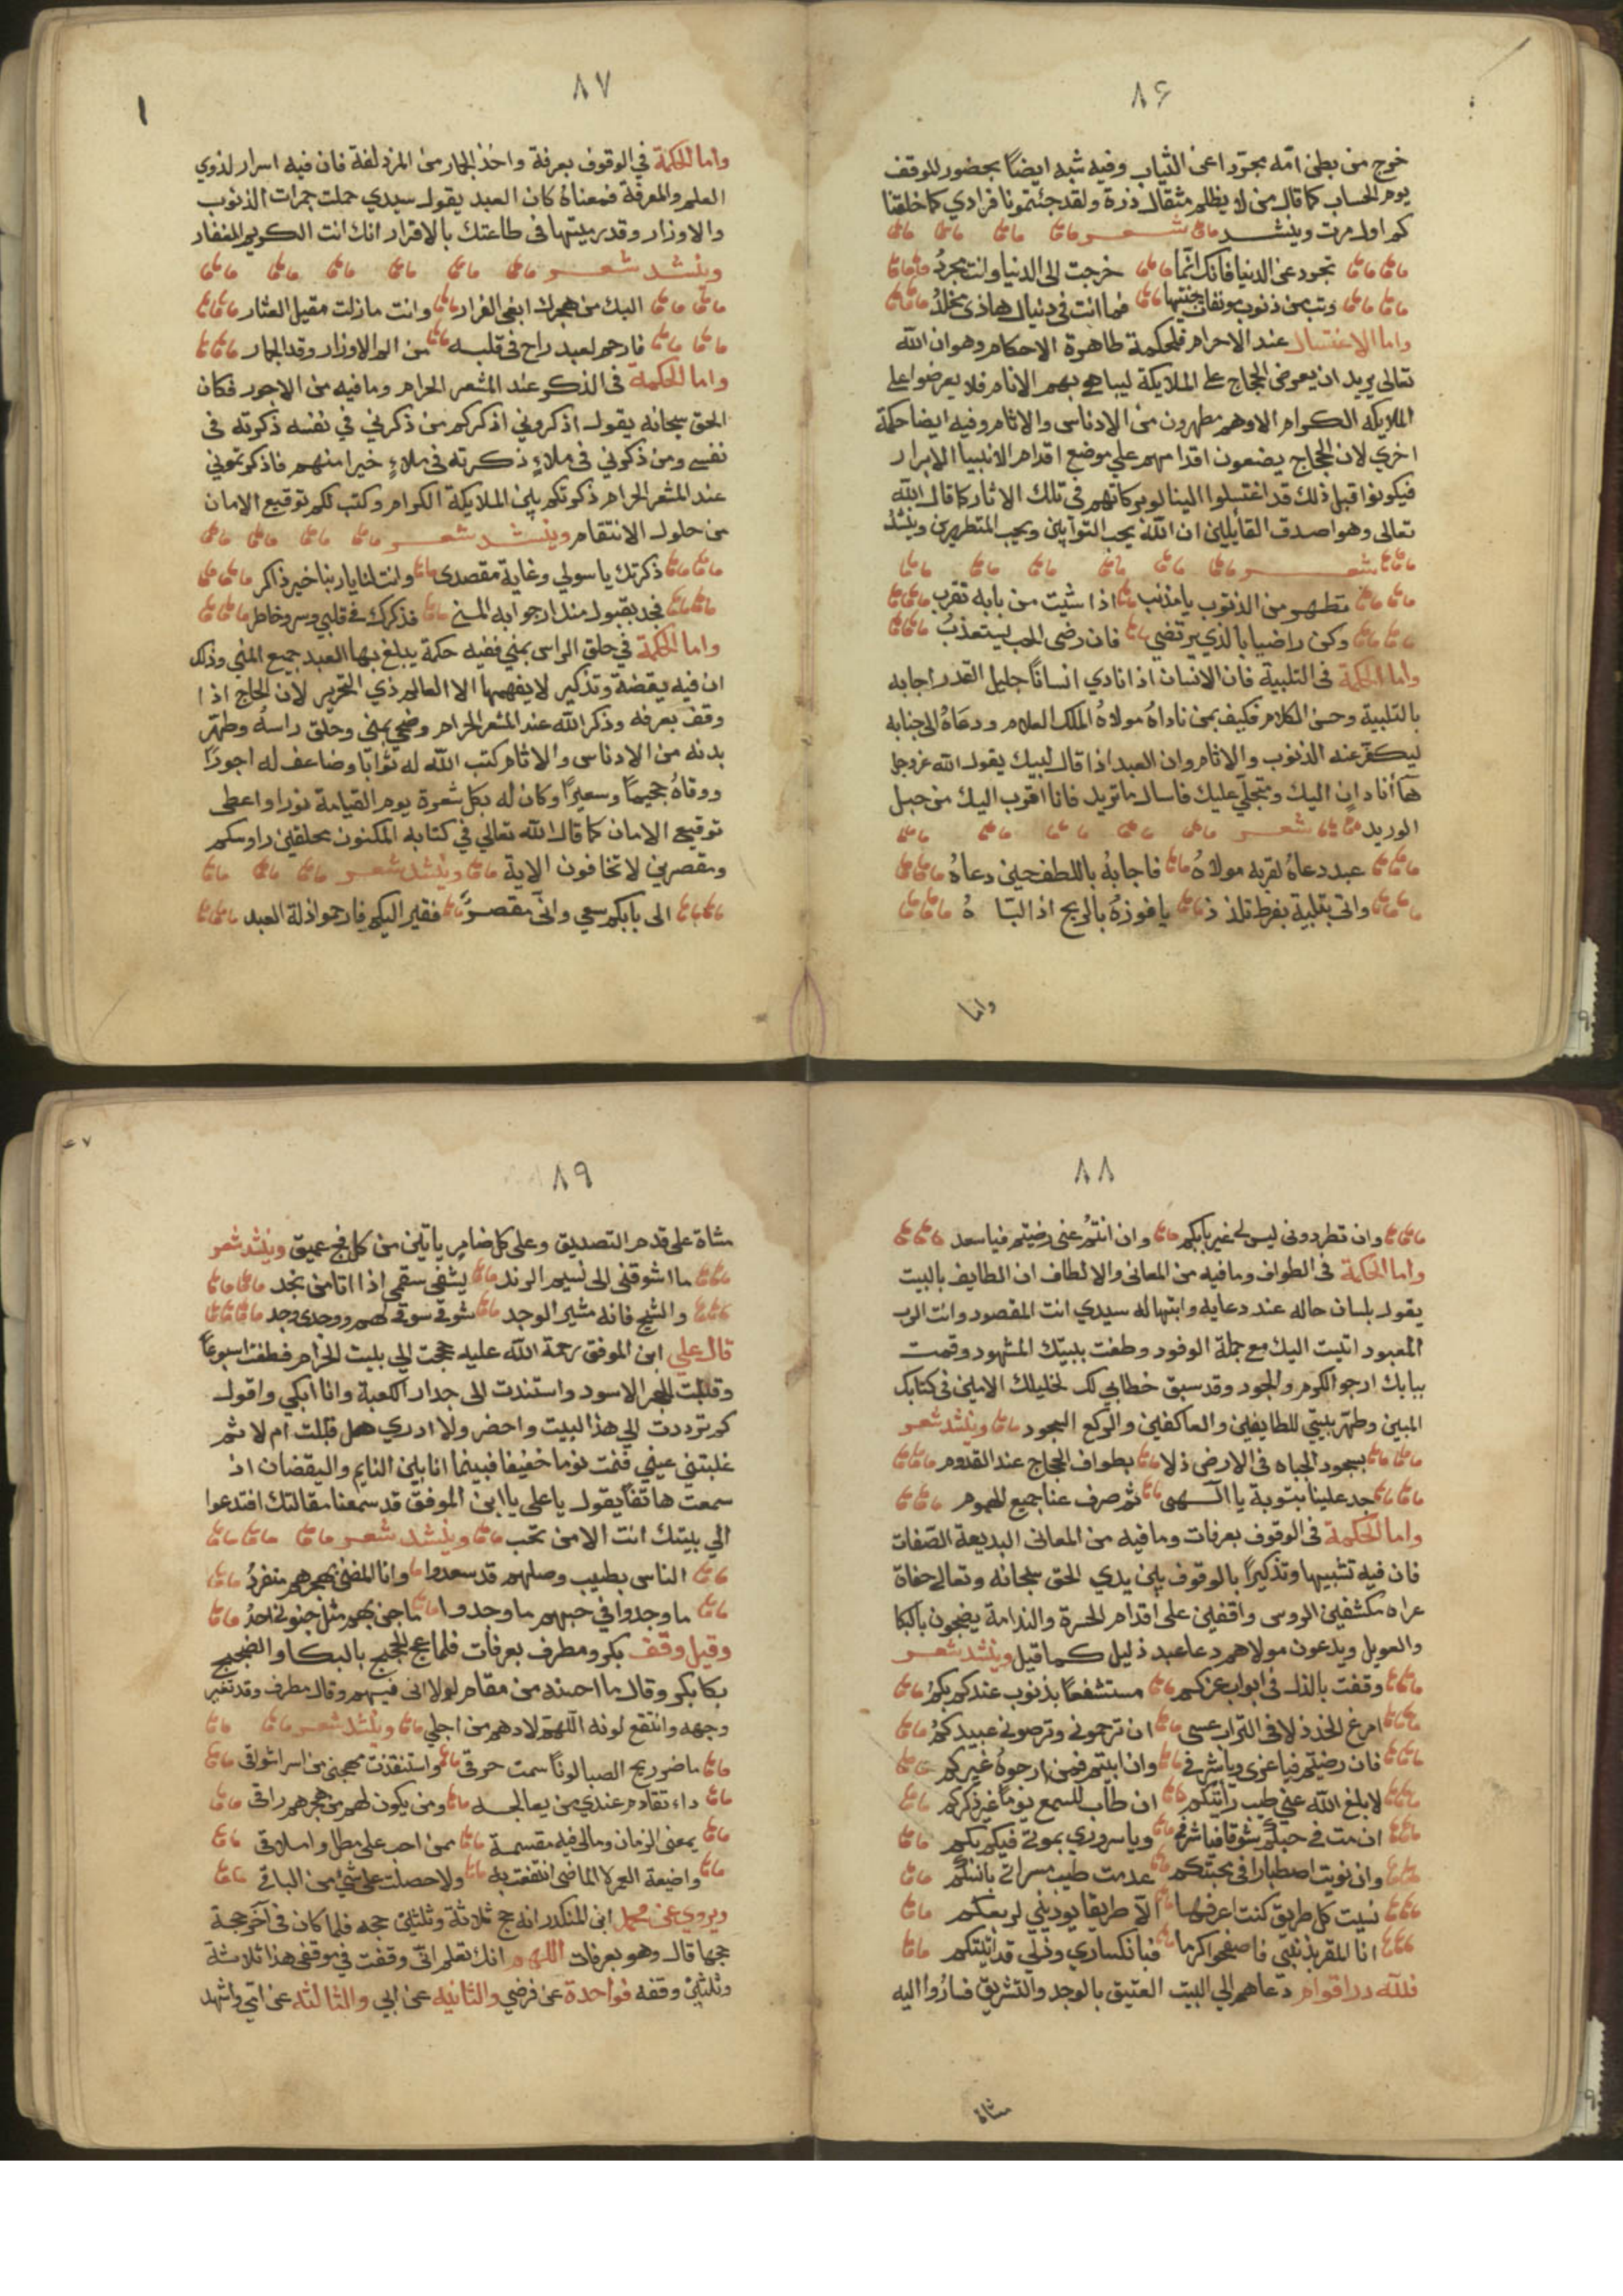 ٨٦
خرج من بطن امّه مجرّدا عن الثياب وفيه شبه ايضاً بحضور الموقف
يوم الحساب كما قال من لا يظلم مثقال ذرة ولقد جئتمونا فرادي كما خلقنا
كم اول مرت وينشد شعر
تجرد عن الدنيا فانك انّما خرجت الى الدنيا وانت مجردُ
وتب من ذنوب موبقات جنيتها فما انت في دنياك هاذي مخلدُ
واما الاغتسال عند الاحرام فلحكمة ظاهرة الاحكام وهو ان الله
تعالى يريد ان يعرض الحجاج على الملايكة ليباهي بهم الانام فلا يعرضوا على
الملايكه الكرام الا وهم مطهرون من الادناس والاثام وفيه ايضا حكمة
اخري لان الحجاج يضعون اقدامهم علي موضع اقدام الانبيا الابرار
فيكونوا قبل ذلك قد اغتسلوا لينالو بركاتهم في تلك الاثار كما قال الله
تعالى وهو اصدق القائلين ان الله يحب التوابين ويحب المتطهرين وينشد
شعر
تطهر من الذنوب يا مذنب اذا شيت من بابه تقرب
وكن راضيا بالذي يرتضي فان رضى الحب يستعذبُ
واما الحكمة في التلبية فان الانسان اذا نادي انساناً جليل القدر اجابه
بالتلبية وحسن الكلام فكيف بمن ناداهُ مولاهُ الملك العلام ودعاهُ الى جنابه
ليكفّر عنه الذنوب والاثام وان العبد اذا قال لبيك يقول الله عز وجل
ها أنا دانٍ اليك ومتجلّي عليك فاسال ما تريد فانا اقرب اليك من حبل
الوريد شعر
عبد دعاهُ لقربه مولاهُ فاجابهُ باللطف حين دعاهُ
واتى بتلبية بفرط تلذذ يا فوزهُ بالربح اذ لبّاهُ
واما
٨٧
واما الحكمة في الوقوف بعرفة واخذ الجمار من المزدلفة فان فيه اسرار لذوي
العلم والمعرفة فمعناهُ كان العبد يقول سيدي حملت جمرات الذنوب
والاوزار وقد رميتها في طاعتك بالاقرار انك انت الكريم الغفار
وينشد شعر
اليك من هجرك ابغى الفرار وانت مازلت مقيل العثار
فارحم لعبد راح في قلبه من الم الاوزار وقد الجمار
واما الحكمة في الذكر عند المشعر الحرام وما فيه من الاجور فكان
الحق سبحانه يقول اذكروني اذكركم من ذكرني في نفسه ذكرته في
نفسي ومن ذكرني في ملاءٍ ذكرته في ملاءٍ خيرا منهم فاذكرتموني
عند المشعر الحرام ذكرتكم بين الملايكة الكرام وكتب لكم توقيع الامان
من حلول الانتقام وينشد شعر
ذكرتك يا سولي وغاية مقصدي وانت لنا يا ربنا خير ذاكر
فجد بقبول منك ارجو به المنى فذكرك في قلبي وسر وخاطر
واما الحكمة في حلق الراس بمني ففيه حكمة يبلغ بها العبد جميع المني وذلك
ان فيه يقضة وتذكير لا يفهمها الا العالم ذي التحرير لان الحاج اذا
وقف بعرفه وذكر الله عند المشعر الحرام وضحي بمني وحلق راسهُ وطهّر
بدنه من الادناس والاثام كتب الله له ثوابًا وضاعف له اجورًا
ووقاهُ جحيماً وسعيرًا وكان له بكل شعرة يوم القيامة نورا واعطى
توقيع الامان كما قال الله تعالي في كتابه المكنون محلقين راوسكم
ومقصرين لا تخافون الاية وينشد شعر
الى بابكم سعي وانّي مقصرٌ فقير اليكم فارحموا ذلة العبد
٨٨
وان تطردوني ليس لي غير بابكم وان انتمُ عني رضيتم فيا سعد
واما الحكمة في الطواف وما فيه من المعانى والالطاف ان الطايف بالبيت
يقول بلسان حاله عند دعايه وابتهاله سيدي انت المقصود وانت الرب
المعبود اتيت اليك مع جملة الوفود وطفت ببيتك المشهود وقمت
ببابك ارجو الكرم والجود وقد سبق خطابي لك لخليلك الامين في كتابك
المبين وطهّر بيتي للطايفين والعاكفين والركع السجود وينشد شعر
بسجود الجباه في الارض ذلا بطواف الحجاج عند القدوم
جد علينا بتوبة يا الٓهى ثم صرف عنا جميع الهموم
واما الحكمة في الوقوف بعرفات وما فيه من المعانى البديعة الصّفات
فان فيه تشبيها وتذكيراً بالوقوف بين يدي الحق سبحانه وتعالى حفاة
عراه مكشفين الروس واقفين على اقدام الحسرة والندامة يضجون بالبكا
والعويل ويدعون مولاهم دعا عبد ذليل كما قيل وينشد شعر
وقفت بالذل في ابواب عزكم مستشفعاً بذنوب عندكم بكمُ
امرغ الخد ذلا في التراب عسى ان ترحموني وترضوني عبيدكمُ
فان رضيتم فيا عزى ويا شرفي وان ابيتم فمن ارجوهُ غيركم
لا بلغ الله عني طيب رايتكم ان طاب للسمع يوماً غير ذكركم
ان مت في حبكم شوقا فيا شرفي ويا سروري بموتي فيكم بكم
وان نويت اصطبارا في محبتكم عدمت طيب مسراتي بانسكم
نسيت كل طريق كنت اعرفها الا طريقا يوديني لربعكم
انا المقر بذنبي فاصفحوا كرما فبانكساري وذلي قد اتيتكم
فلله در اقوام دعاهم الي البيت العتيق بالوجد والتشريق فسارُوا اليه
مشاة
٨٩
مشاة على قدم التصديق وعلى كل ضامرٍ ياتين من كل فج عميق وينشد شعر
ما اشوقنى الى نسيم الرند يشفى سقمي اذا اتا من نجد
والشيح فانه مثير الوجد شوقي شوقي لهم ووجدي وجد
قال علي ابن الموفق رحمة الله عليه حججت الي بيت الحرام فطفت اسبوعاً
وقبلت الحجر الاسود واستندت الى جدار الكعبة وانا ابكي واقول
كم ترددت الي هذا البيت واحضر ولا ادري هل قبلت ام لا ثم
غلبتني عيني فنمت نوما خفيفا فبينما انا بين النايم واليقضان اذ
سمعت هاتفاً يقول يا علي يا ابن الموفق قد سمعنا مقالتك افتدعوا
الي بيتك انت الا من تحب وينشد شعر
الناس بطيب وصلهم قد سعدوا وانا المضنى بهجرهم منفردُ
ما وجدوا في حبهم ما وجدوا ما جن بهم مثل جنوني احدُ
وقيل وقف بكر ومطرف بعرفات فلما عج الحجيج بالبكا والضجيج
بكا بكر وقال ما احسنه من مقام لولا اني فيهم وقال مطرف وقد تغير
وجهه وانتقع لونه اللهمّ لا تردهم من اجلي وينشد شعر
ما ضر ريح الصبا لو ناسمت حرقي واستنقذت مهجتى من اسر اشواقى
داء تقادم عندي من يعالجه ومن يكون لهم من هجرهم راقى
يمضى الزمان ومالى فيه مقسمة ممن احب على مطل واملاقى
واضيعة العمر لا الماضى انتفعت به ولا حصلت على شيٍ من الباقي
ويروي عن محمد ابن المنكدر انه حج ثلاثة وثلثين حجه فلما كان في آخر حجة
حجها قال وهو بعرفات اللهم انك تعلم انّى وقفت في موقفى هذا ثلاثة
وثلثين وقفه فواحدة عن فرضي والثانيه عن ابي والثالثه عن امّي واشهد